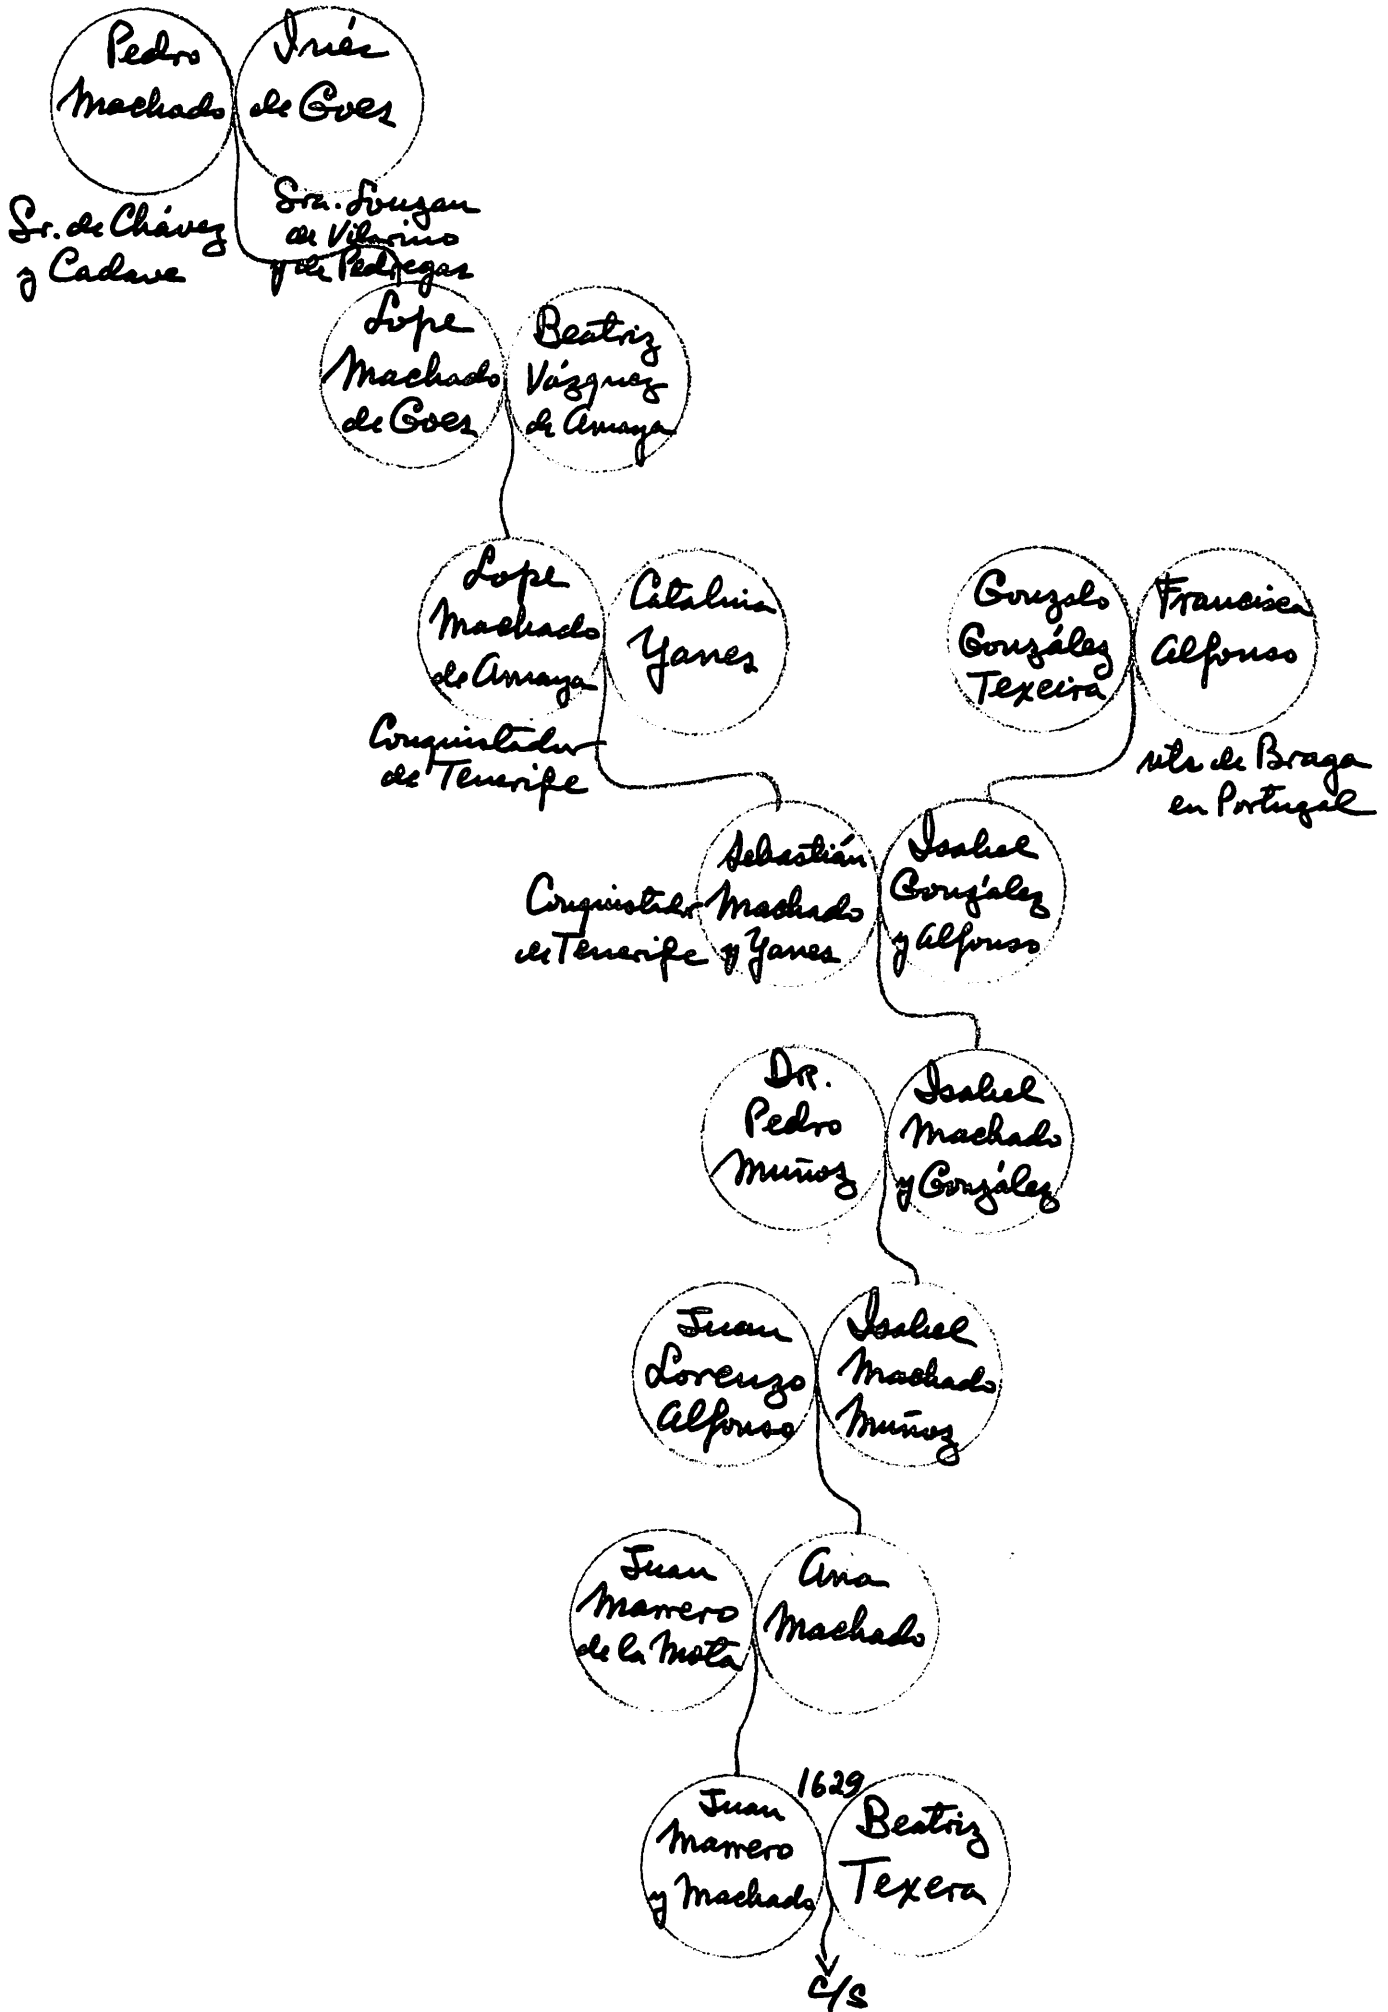 Pedro
Machado
Inés
de Goes
Sr. de Chávez
y Cadave
Sra. Souzan
de Vilarino
y de Pedregas
Lope
Machado
de Goes
Beatriz
Vázquez
de Amaya
Lope
Machado
de Amaya
Catalina
Yanes
Conquistador
de Tenerife
Gonzalo
González
Texeira
Francisca
Alfonso
nts de Braga
en Portugal
Sebastián
Machado
y Yanes
Conquistador
de Tenerife
Isabel
González
y Alfonso
Dr.
Pedro
Muñoz
Isabel
Machado
y González
Juan
Lorenzo
Alfonso
Isabel
Machado
Muñoz
Juan
Marrero
de la Mota
Ana
Machado
1629
Juan
Marrero
y Machado
Beatriz
Texera
c/s